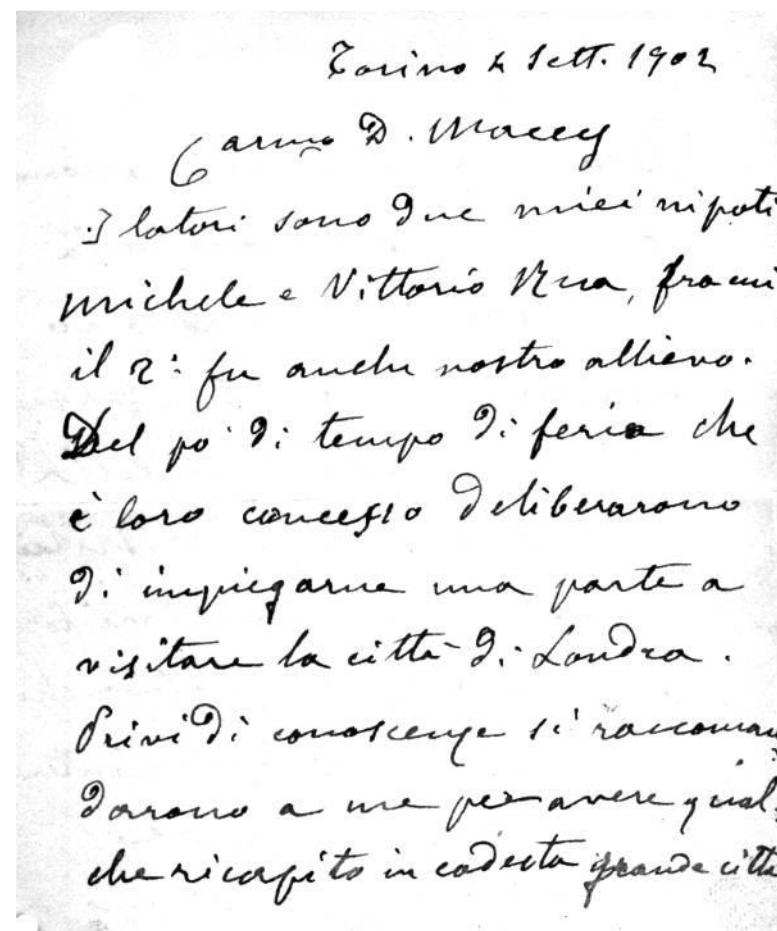 Torino 4 Sett. 1902
Carmo D. Macey
I latori sono due miei nipoti
Michele e Vittorio Rua, fra cui
il 2º fu anche nostro allievo.
Del po' di tempo di feria che
è loro concesso deliberarono
di impiegarne una parte a
visitare la città di Londra.
Privi di conoscenze si raccoman
darono a me per avere qual-
che ricapito in codesta grande città